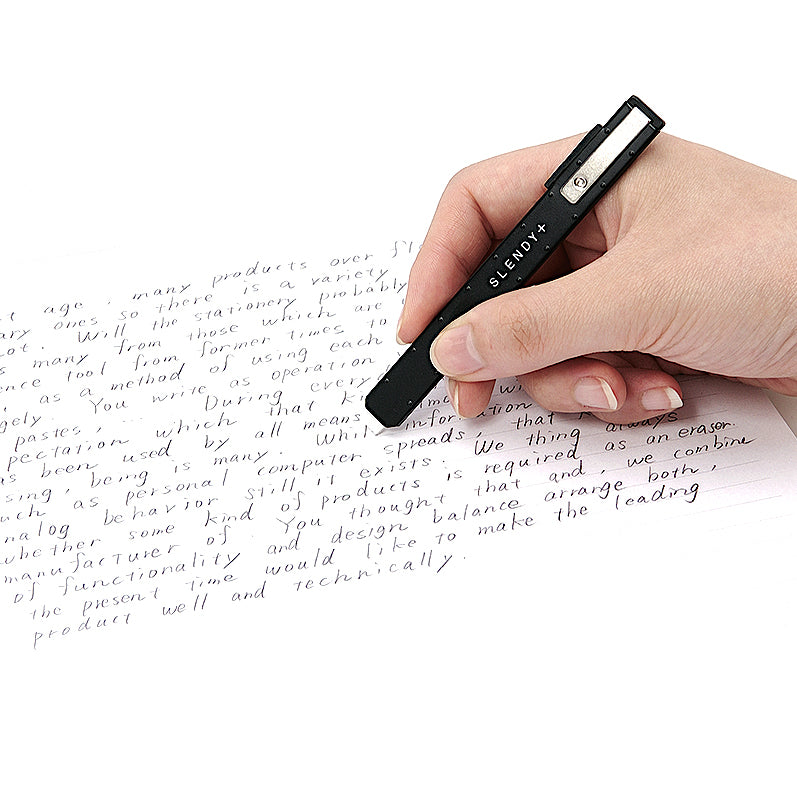 SLENDY+
age , many products over
ary ones so there is a variety
ot . Will the stationery probably
s many from those which are
ence tool from former times to
, as a method of using each
gely . You write as operation
pastes , ... During every
pectation which that
as been used by all means
sing , being is many . Whil information
uch as personal computer spreads , that
nalog behavior still it exists . We thing always
whether some kind of products is required as an eraser.
manufacturer of . You thought that and , we combine
of functionality and design balance arrange both ,
the present time would like to make the leading
product well and technically .